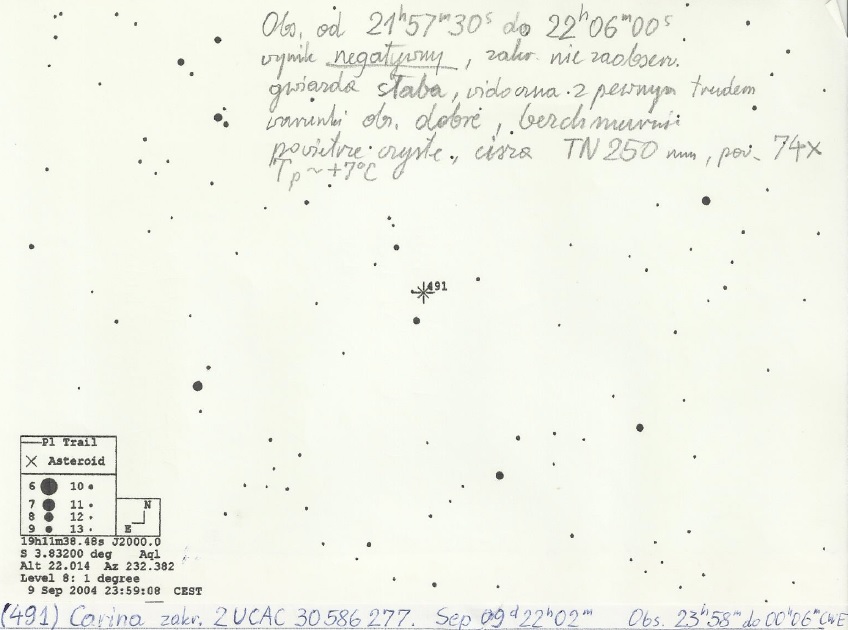 Obs. od 21ʰ57ᵐ30ˢ do 22ʰ06ᵐ00ˢ
wynik negatywny, zakr. nie zaobserw.
gwiazda słaba, widoczna z pewnym trudem
warunki obs. dobre, bezchmurnie
powietrze czyste, cisza TN 250 mm, pow. 74x
Tp ~ +7°C
491
Pl Trail
Asteroid
6 10
7 11
8 12
9 13
N
E
19h11m38.48s J2000.0
S 3.83200 deg Aql
Alt 22.014 Az 232.382
Level 8: 1 degree
9 Sep 2004 23:59:08 CEST
(491) Carina zakr. 2UCAC 30586277. Sep 09ᵈ22ʰ02ᵐ Obs. 23ʰ58ᵐ do 00ʰ06ᵐ CWE